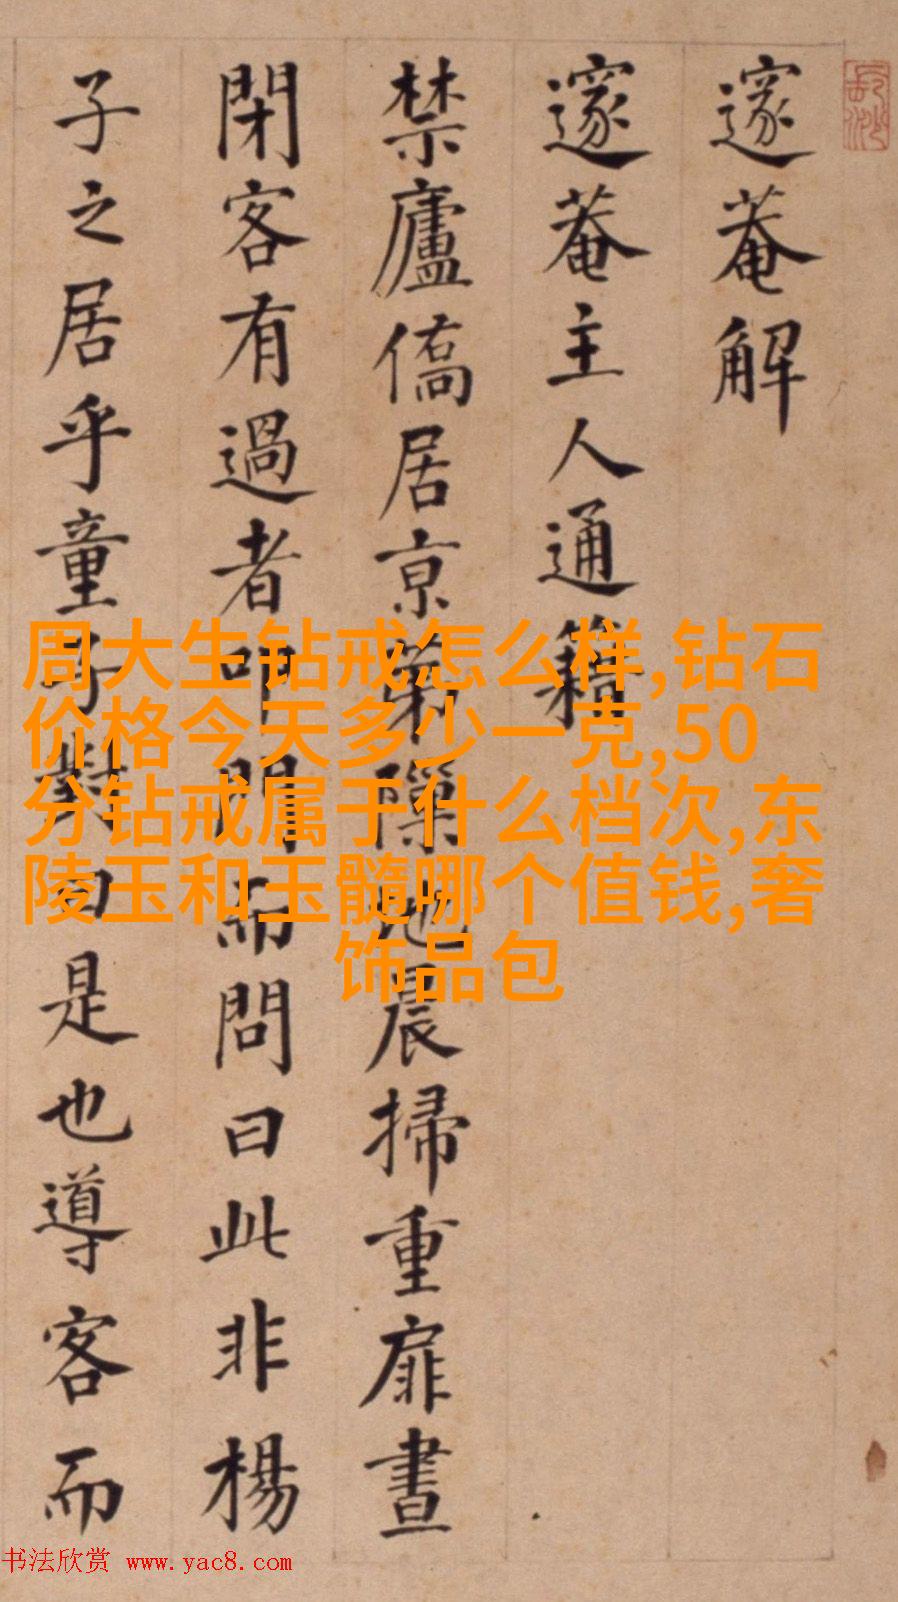 邃菴解
邃菴主人通籍
禁廬僑居京第隰地晨掃重扉晝
閉客有過者叩門而問曰此非楊
子之居乎童子對曰是也導客而
周大生钻戒怎么样,钻石
价格今天多少一克,50
分钻戒属于什么档次,东
陵玉和玉髓哪个值钱,奢
饰品包
书法欣赏 www.yac8.com